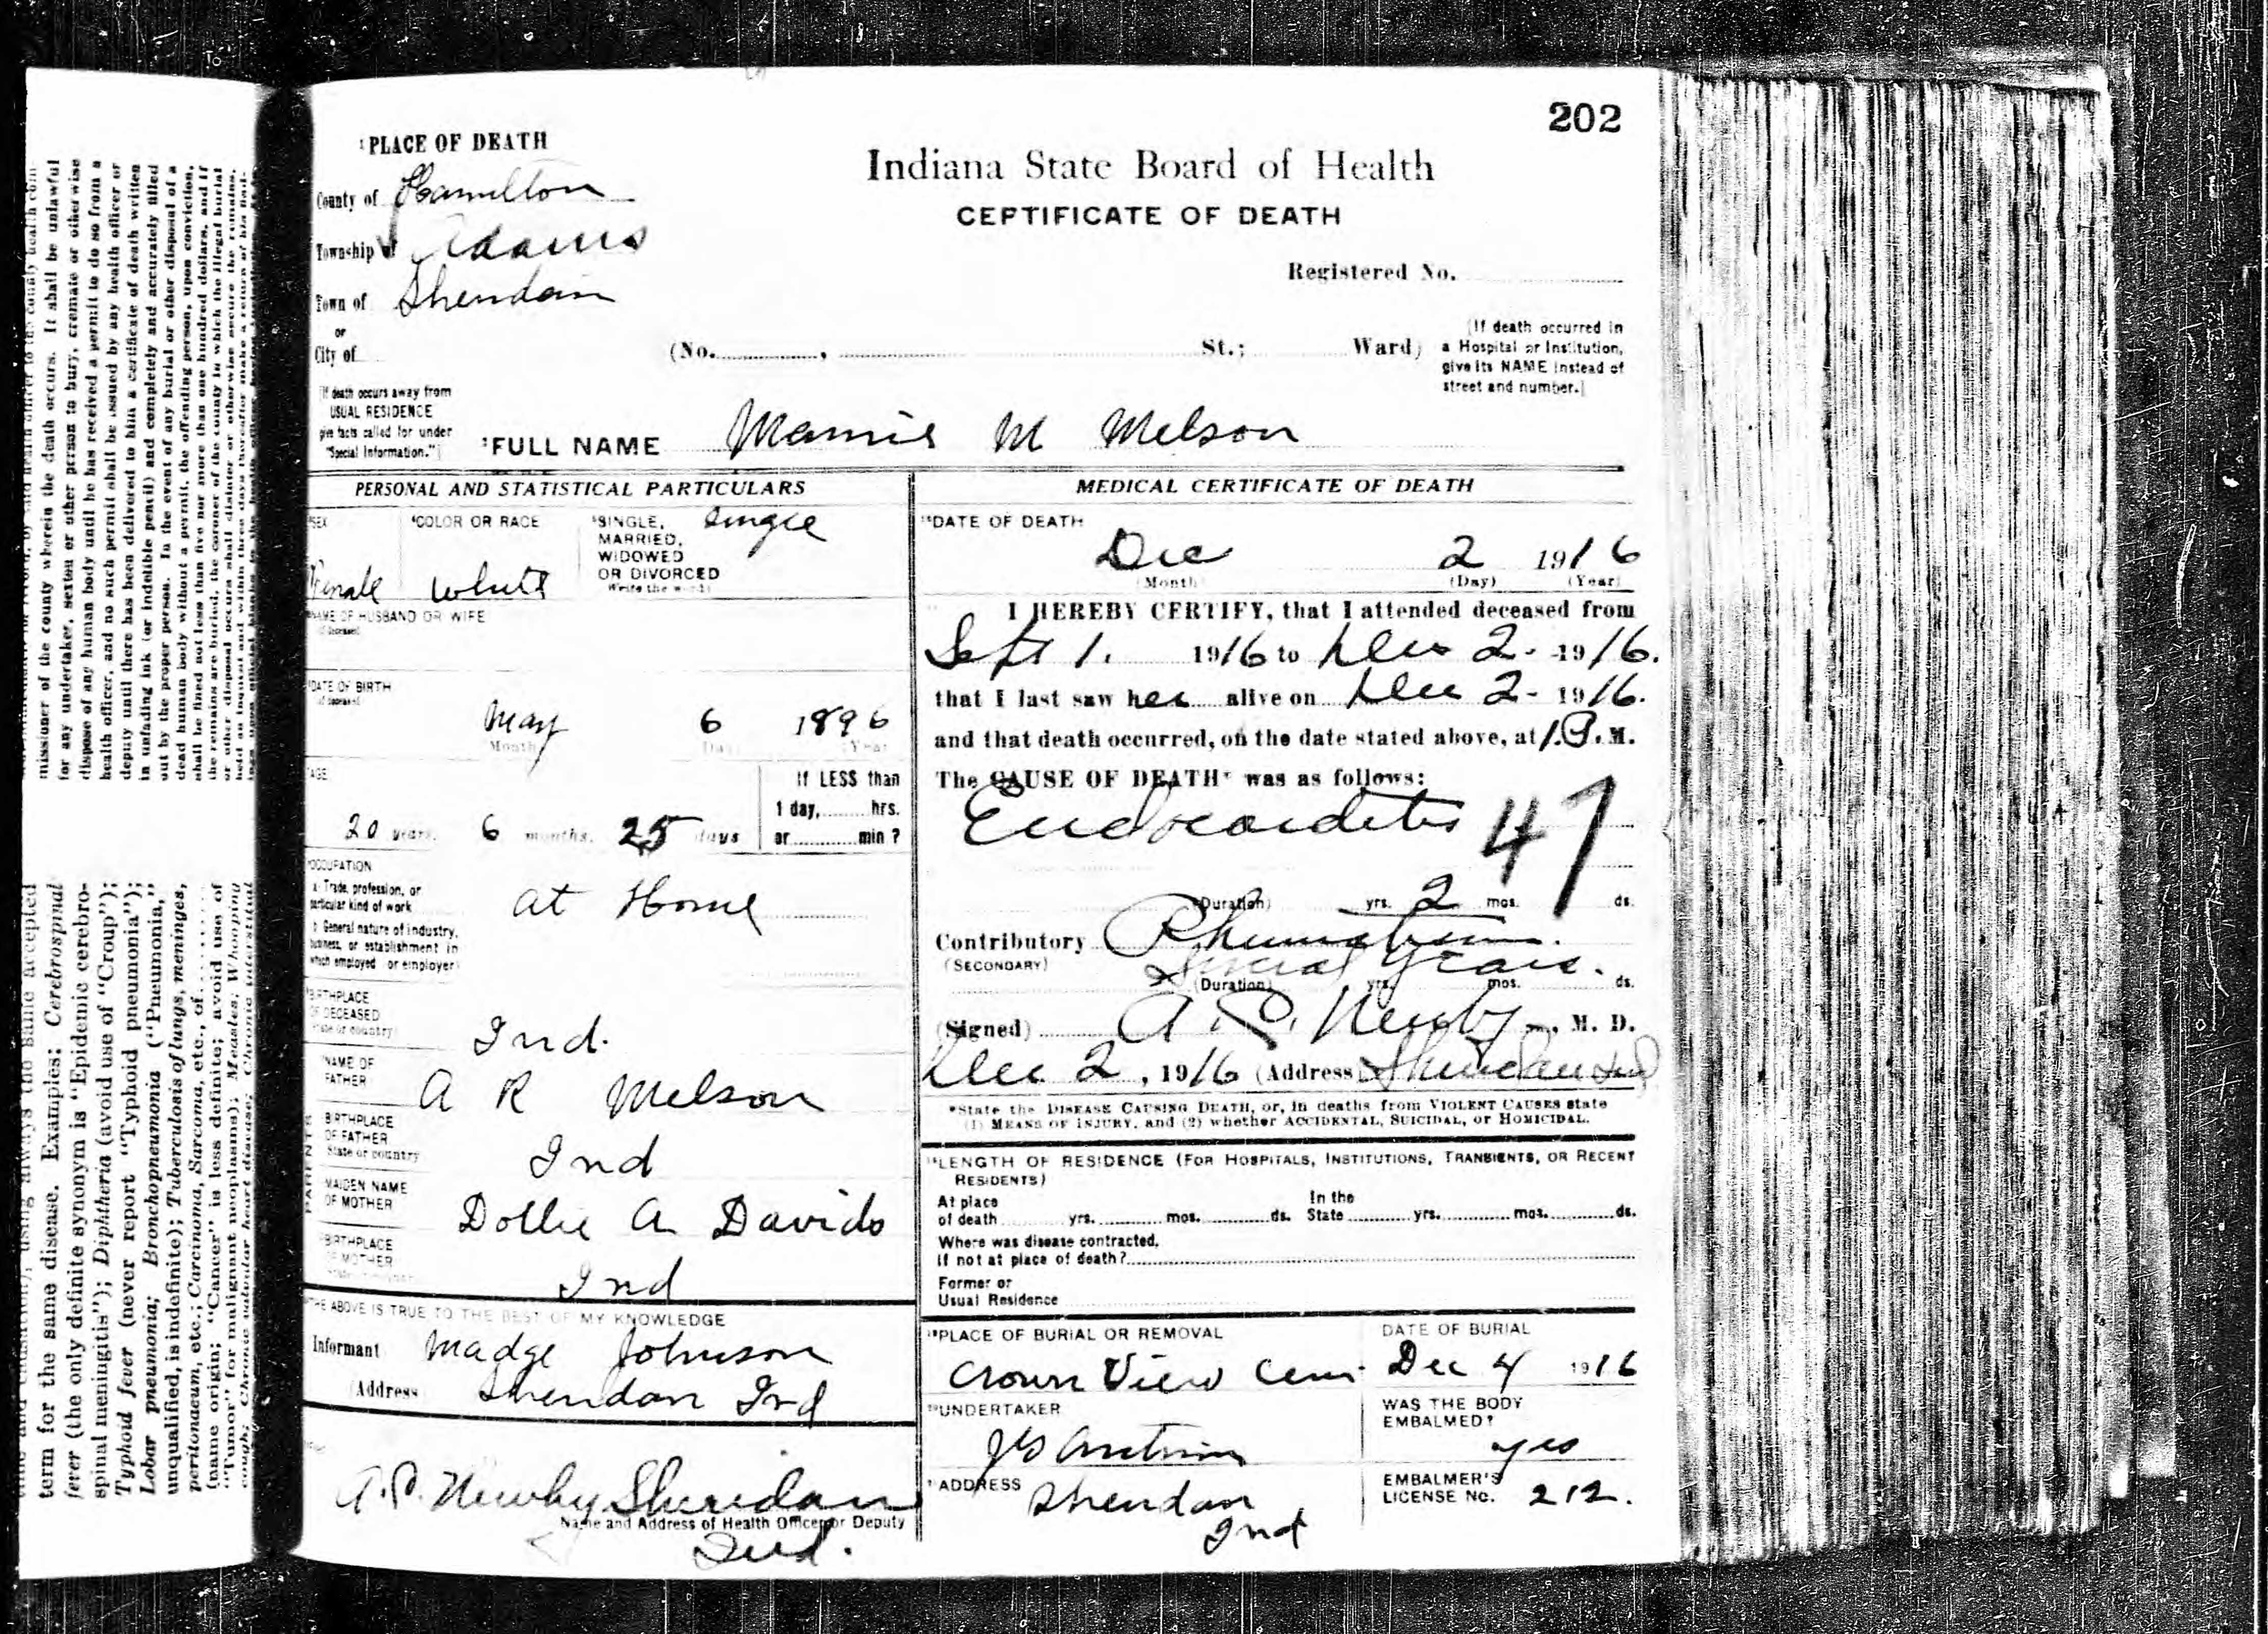 202
PLACE OF DEATH
County of Hamilton
Township of Adams
Town of Sheridan
or
City of
Indiana State Board of Health
CERTIFICATE OF DEATH
Registered No.
(No. , St.; Ward)
(If death occurred in
a Hospital or Institution,
give its NAME instead of
street and number.)
If death occurs away from
USUAL RESIDENCE
give facts called for under
"Special Information."
FULL NAME Mamie M Melson
PERSONAL AND STATISTICAL PARTICULARS
SEX
Female
COLOR OR RACE
White
SINGLE,
MARRIED,
WIDOWED
OR DIVORCED
Write the word
Single
NAME OF HUSBAND OR WIFE
of deceased
DATE OF BIRTH
of deceased
May 6 1896
Month Day Year
AGE
20 years. 6 months. 25 days
If LESS than
1 day, hrs.
or min ?
OCCUPATION
Trade, profession, or
particular kind of work
at Home
General nature of industry,
business, or establishment in
which employed or employer
BIRTHPLACE
OF DECEASED
State or country
Ind.
NAME OF
FATHER
A R Melson
BIRTHPLACE
OF FATHER
State or country
Ind
MAIDEN NAME
OF MOTHER
Dollie A Davids
BIRTHPLACE
OF MOTHER
Ind
PARENTS
THE ABOVE IS TRUE TO THE BEST OF MY KNOWLEDGE
Informant Madge Johnson
(Address Sheridan Ind
Newby Sheridan
Name and Address of Health Officer or Deputy
Ind.
MEDICAL CERTIFICATE OF DEATH
DATE OF DEATH
Dec 2 1916
(Month) (Day) (Year)
I HEREBY CERTIFY, that I attended deceased from
Sept 1. 1916 to Dec 2. 1916.
that I last saw her alive on Dec 2- 1916.
and that death occurred, on the date stated above, at 1.P. M.
The CAUSE OF DEATH* was as follows:
Endocarditis
47
(Duration) yrs. 2 mos. ds.
Contributory Rheumatism.
(SECONDARY) Several years.
(Duration) yrs. mos. ds.
(Signed) Newby, M. D.
Dec 2, 1916 (Address) Sheridan Ind
*State the DISEASE CAUSING DEATH, or, in deaths from VIOLENT CAUSES state
(1) MEANS OF INJURY, and (2) whether ACCIDENTAL, SUICIDAL, or HOMICIDAL.
LENGTH OF RESIDENCE (FOR HOSPITALS, INSTITUTIONS, TRANSIENTS, OR RECENT
RESIDENTS)
At place
of death yrs. mos. ds.
In the
State yrs. mos. ds.
Where was disease contracted,
if not at place of death?
Former or
Usual Residence
PLACE OF BURIAL OR REMOVAL
Crown View Cem.
DATE OF BURIAL
Dec 4 1916
UNDERTAKER
WAS THE BODY
EMBALMED?
yes
ADDRESS
Sheridan
Ind
EMBALMER'S
LICENSE No. 212.
missioner of the county wherein the death occurs. It shall be unlawful
for any undertaker, sexton or other person to bury, cremate or otherwise
dispose of any human body until he has received a permit to do so from a
health officer, and no such permit shall be issued by any health officer or
deputy until there has been delivered to him a certificate of death written
in unfading ink (or indelible pencil) and completely and accurately filled
out by the proper person. In the event of any burial or other disposal of a
dead human body without a permit, the offending person, upon conviction,
shall be fined not less than five nor more than one hundred dollars, and if
the remains are buried, the coroner of the county in which the illegal burial
or other disposal occurs shall disinter or otherwise secure the remains,
term for the same disease. Examples: Cerebrospinal
fever (the only definite synonym is "Epidemic cerebro-
spinal meningitis"); Diphtheria (avoid use of "Croup");
Typhoid fever (never report "Typhoid pneumonia");
Lobar pneumonia; Bronchopneumonia ("Pneumonia,"
unqualified, is indefinite); Tuberculosis of lungs, meninges,
peritonaeum, etc.; Carcinoma, Sarcoma, etc., of
(name origin; "Cancer" is less definite; avoid use of
"Tumor" for malignant neoplasms); Measles; Whooping
cough; Chronic valvular heart disease; Chronic interstitial